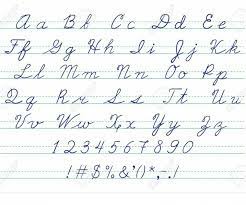 Aa Bb Cc Dd Ee
Ff Gg Hh Ii Jj Kk
Ll Mm Nn Oo Pp
Qq Rr Ss Tt Uu
Vv Ww Xx Yy Zz
1234567890
!#$%&'()*,-.!